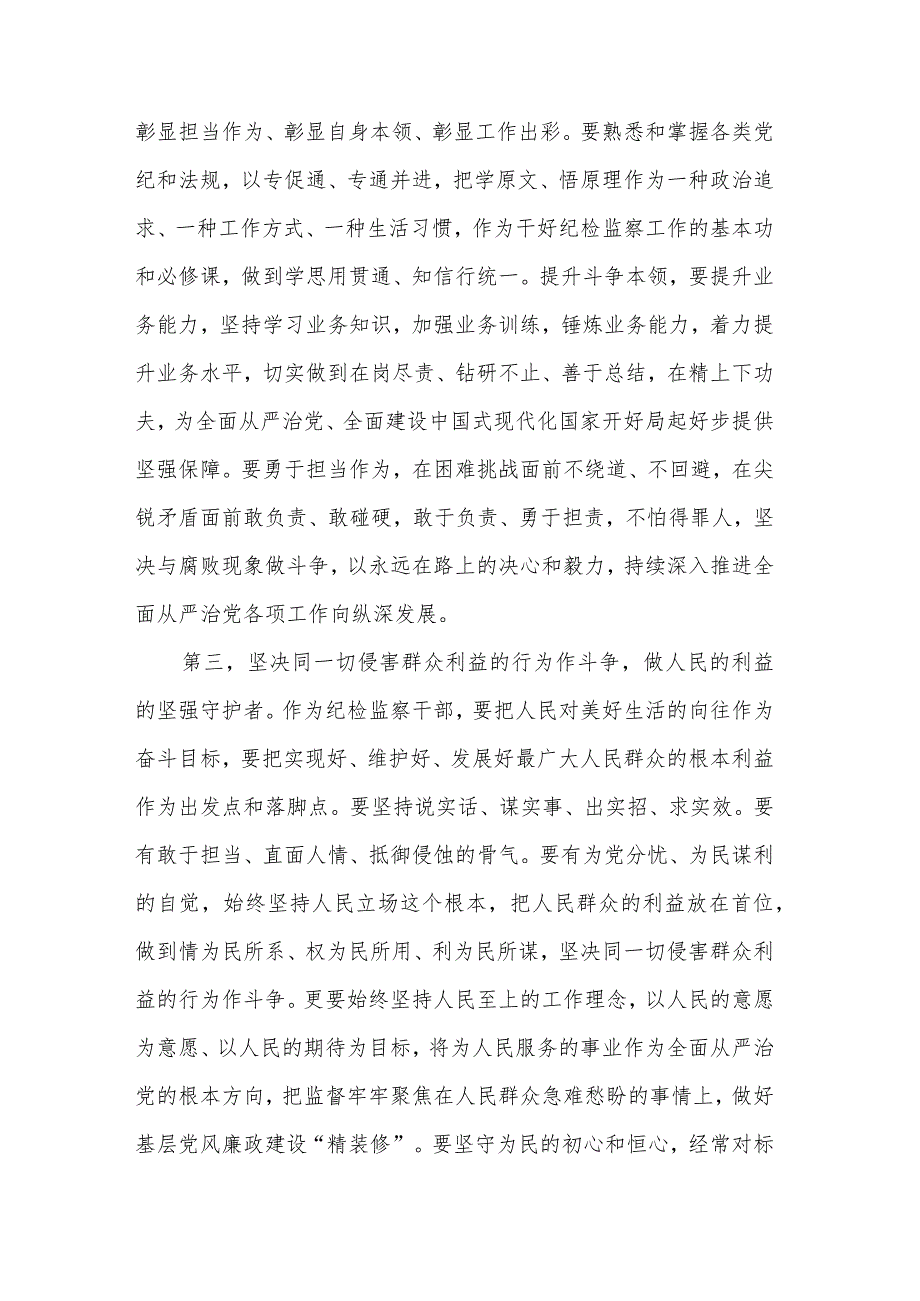 彰显担当作为、彰显自身本领、彰显工作出彩。要熟悉和掌握各类党
纪和法规，以专促通、专通并进，把学原文、悟原理作为一种政治追
求、一种工作方式、一种生活习惯，作为干好纪检监察工作的基本功
和必修课，做到学思用贯通、知信行统一。提升斗争本领，要提升业
务能力，坚持学习业务知识，加强业务训练，锤炼业务能力，着力提
升业务水平，切实做到在岗尽责、钻研不止、善于总结，在精上下功
夫，为全面从严治党、全面建设中国式现代化国家开好局起好步提供
坚强保障。要勇于担当作为，在困难挑战面前不绕道、不回避，在尖
锐矛盾面前敢负责、敢碰硬，敢于负责、勇于担责，不怕得罪人，坚
决与腐败现象做斗争，以永远在路上的决心和毅力，持续深入推进全
面从严治党各项工作向纵深发展。
第三，坚决同一切侵害群众利益的行为作斗争，做人民的利益
的坚强守护者。作为纪检监察干部，要把人民对美好生活的向往作为
奋斗目标，要把实现好、维护好、发展好最广大人民群众的根本利益
作为出发点和落脚点。要坚持说实话、谋实事、出实招、求实效。要
有敢于担当、直面人情、抵御侵蚀的骨气。要有为党分忧、为民谋利
的自觉，始终坚持人民立场这个根本，把人民群众的利益放在首位，
做到情为民所系、权为民所用、利为民所谋，坚决同一切侵害群众利
益的行为作斗争。更要始终坚持人民至上的工作理念，以人民的意愿
为意愿、以人民的期待为目标，将为人民服务的事业作为全面从严治
党的根本方向，把监督牢牢聚焦在人民群众急难愁盼的事情上，做好
基层党风廉政建设“精装修”。要坚守为民的初心和恒心，经常对标